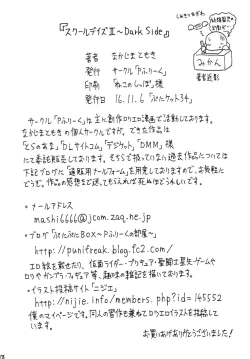 『スクールデイズⅡ～Dark Side』
著者 なかじまともき
発行 サークル「Pぷりーく」
印刷 「ねこのしっぽ」様
発行 16.11.6「ぷにケット34」
みかん
著者近影
サークル「Pぷりーく」は主に創作ロリエロ漫画で活動しております。
なかじまともきの個人サークルですが、できた作品は
『とらのあな』『DLサイトコム』『デジケット』『DMM』様
にて委託販売しております。そちらで扱っていない過去作品については
下記ブログに「通販用メールフォーム」を用意しておりますので、お気軽に
どうぞ。作品の感想など送ってもらえれば死ぬほどうれしいです。
・メールアドレス
mashi6666@jcom.zaq.ne.jp
・ブログ「ぷにぷにBOX～Pぷりーくの部屋～」
http://punifreak.blog.fc2.com/
エロ絵を載せたり、仮面ライダー・プリキュア・聖闘士星矢・ゲームや
ロリやガンプラ・フィギュア等、趣味の雑記を描いております。
・イラスト投稿サイト「ニジエ」
http://nijie.info/members.php?id=145552
僕のマイページです。同人の宣伝も兼ねてロリエロイラストを投稿して
います。
お買いあげありがとうございました!